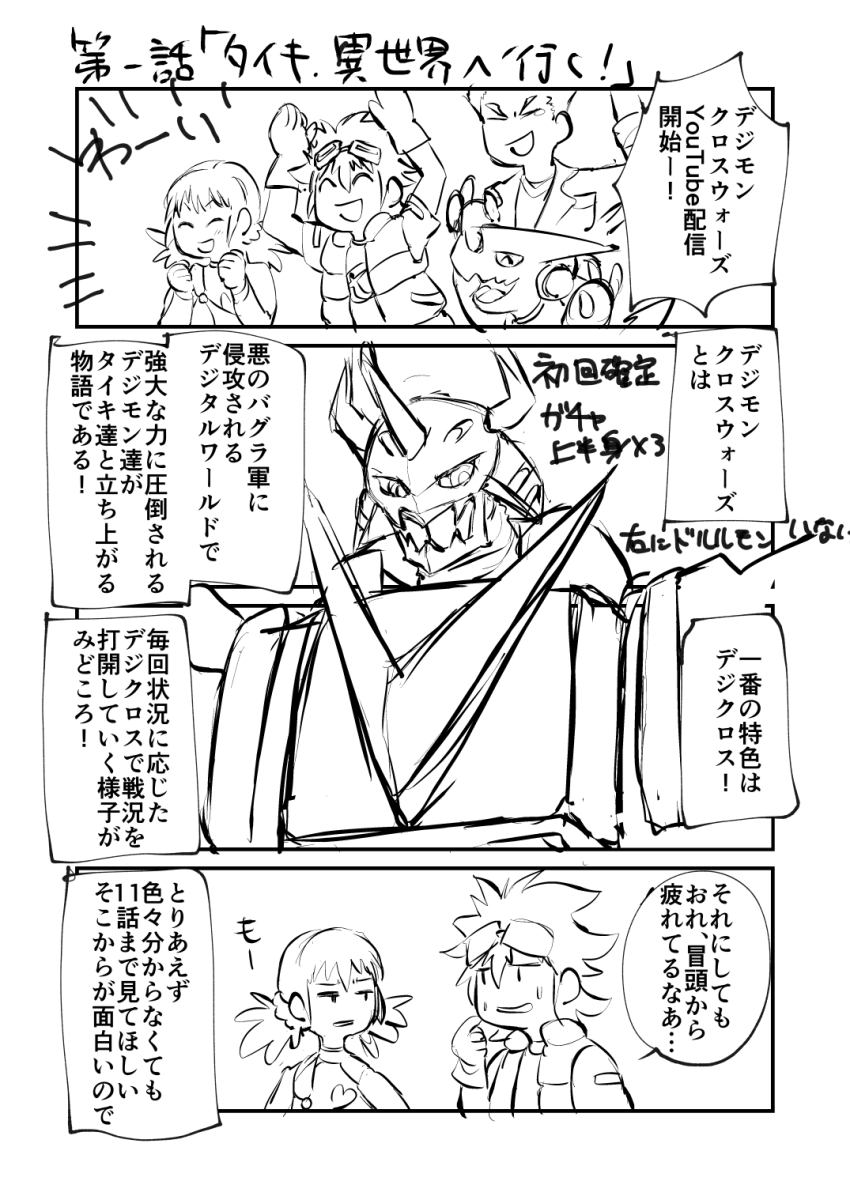 第一話「タイキ、異世界へ行く！」
デジモン
クロスウォーズ
YouTube配信
開始ー！
わーい
デジモン
クロスウォーズ
とは
初回確定
ガチャ
上半身×3
悪のバグラ軍に
侵攻される
デジタルワールドで
強大な力に圧倒される
デジモン達が
タイキ達と立ち上がる
物語である！
右にドルルモンいない
一番の特色は
デジクロス！
毎回状況に応じた
デジクロスで戦況を
打開していく様子が
みどころ！
それにしても
おれ、冒頭から
疲れてるなあ…
もー
とりあえず
色々分からなくても
11話まで見てほしい
そこからが面白いので